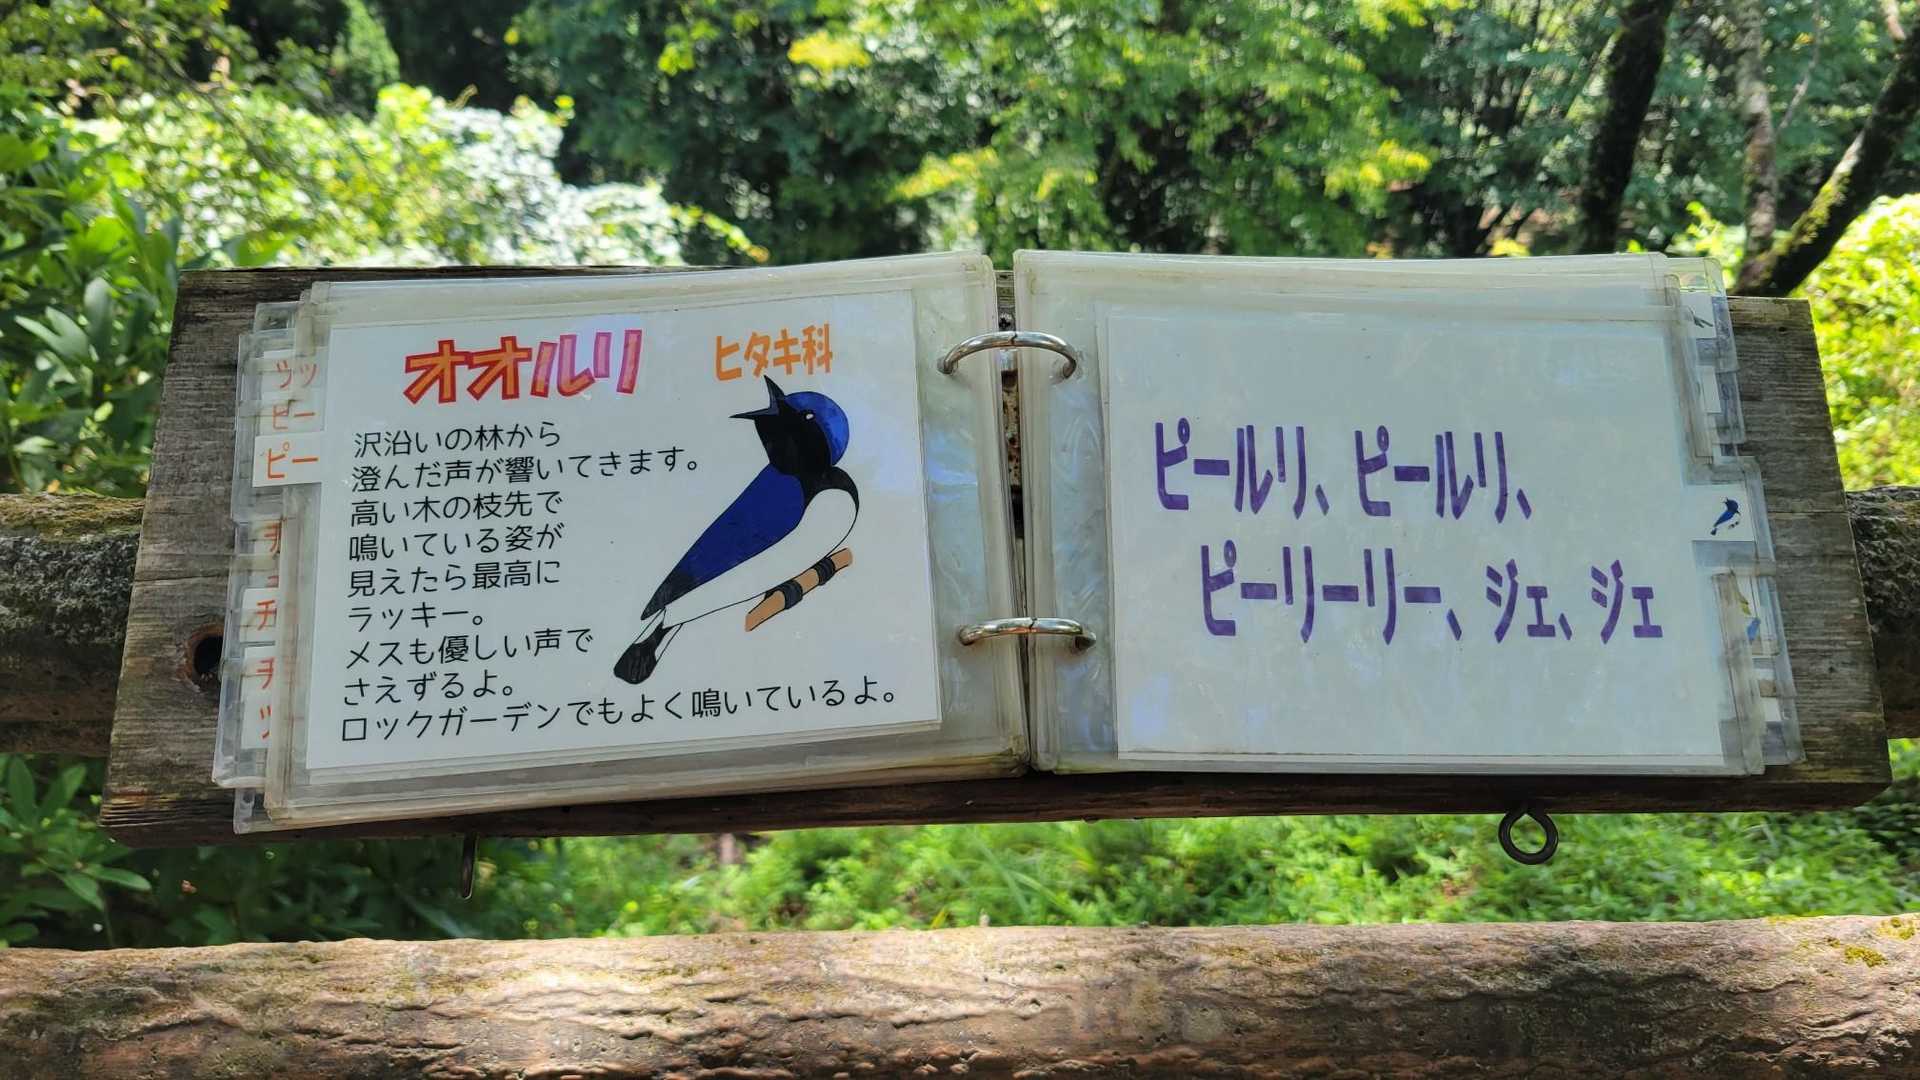 オオルリ ヒタキ科
沢沿いの林から
澄んだ声が響いてきます。
高い木の枝先で
鳴いている姿が
見えたら最高に
ラッキー。
メスも優しい声で
さえずるよ。
ロックガーデンでもよく鳴いているよ。
ピールリ、ピールリ、
ピーリーリー、ジェ、ジェ
ウッ
ピー
ピー
チ